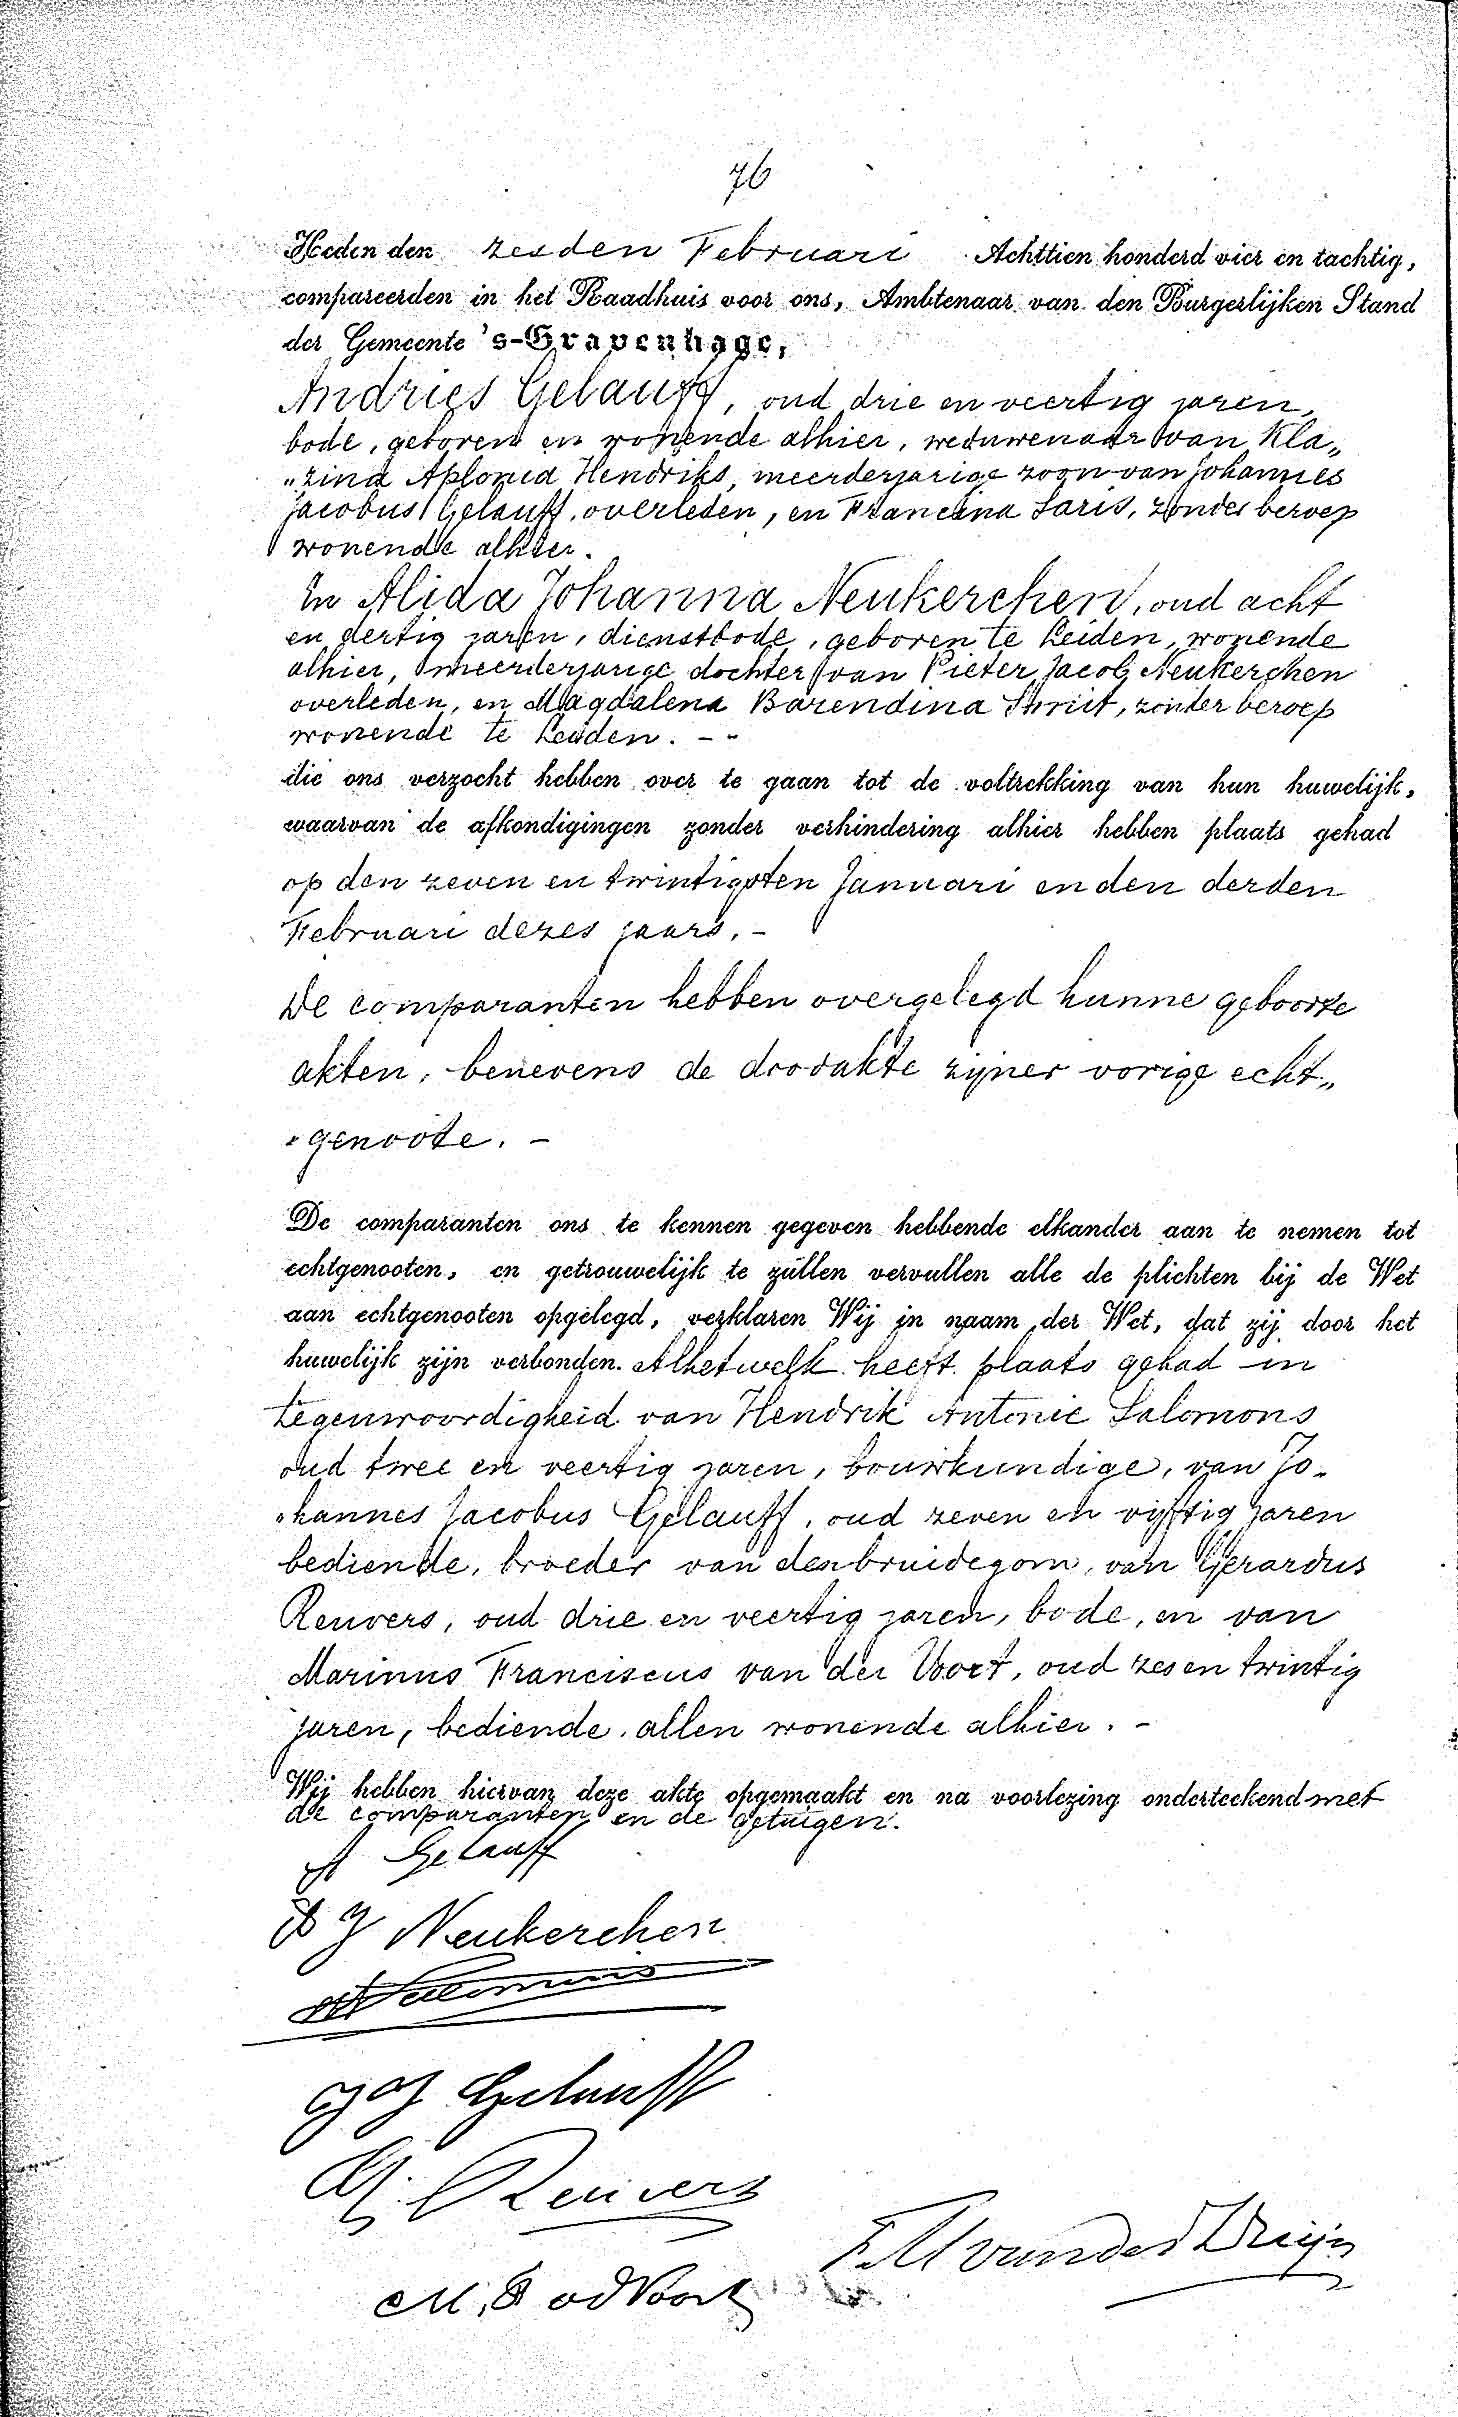 76
Heden den zesden Februari Achttien honderd vier en tachtig,
compareerden in het Raadhuis voor ons, Ambtenaar van den Burgerlijken Stand
der Gemeente 's-Gravenhage,
Andries Gelauff, oud drie en veertig jaren,
bode, geboren en wonende alhier, weduwenaar van Kla„
„zina Aplonia Hendriks, meerderjarige zoon van Johannes
Jacobus Gelauff, overleden, en Francina Saris, zonder beroep
wonende alhier.
En Alida Johanna Neukerchen, oud acht
en dertig jaren, dienstbode, geboren te Leiden, wonende
alhier, meerderjarige dochter van Pieter Jacob Neukerchen
overleden, en Magdalena Barendina, zonder beroep
wonende te Leiden. - -
die ons verzocht hebben over te gaan tot de voltrekking van hun huwelijk,
waarvan de afkondigingen zonder verhindering alhier hebben plaats gehad
op den zeven en twintigsten Januari en den derden
Februari dezes jaars. -
De comparanten hebben overgelegd hunne geboorte
akten, benevens de doodakte zijner vorige echt„
„genoote. -
De comparanten ons te kennen gegeven hebbende elkander aan te nemen tot
echtgenooten, en getrouwelijk te zullen vervullen alle de plichten bij de Wet
aan echtgenooten opgelegd, verklaren Wij in naam der Wet, dat zij door het
huwelijk zijn verbonden. Alhetwelk heeft plaats gehad in
tegenwoordigheid van Hendrik Antonie Salomons
oud twee en veertig jaren, bouwkundige, van Jo„
„hannes Jacobus Gelauff, oud zeven en vijftig jaren
bediende, broeder van den bruidegom, van Gerardus
Reuvers, oud drie en veertig jaren, bode, en van
Marinus Franciscus van der Voort, oud zes en twintig
jaren, bediende, allen wonende alhier. -
Wij hebben hiervan deze akte opgemaakt en na voorlezing onderteekend met
de comparanten en de getuigen.
A Gelauff
A J Neukerchen
HA Salomons
J J Gelauff
G. Reuvers
M. F vd Voort